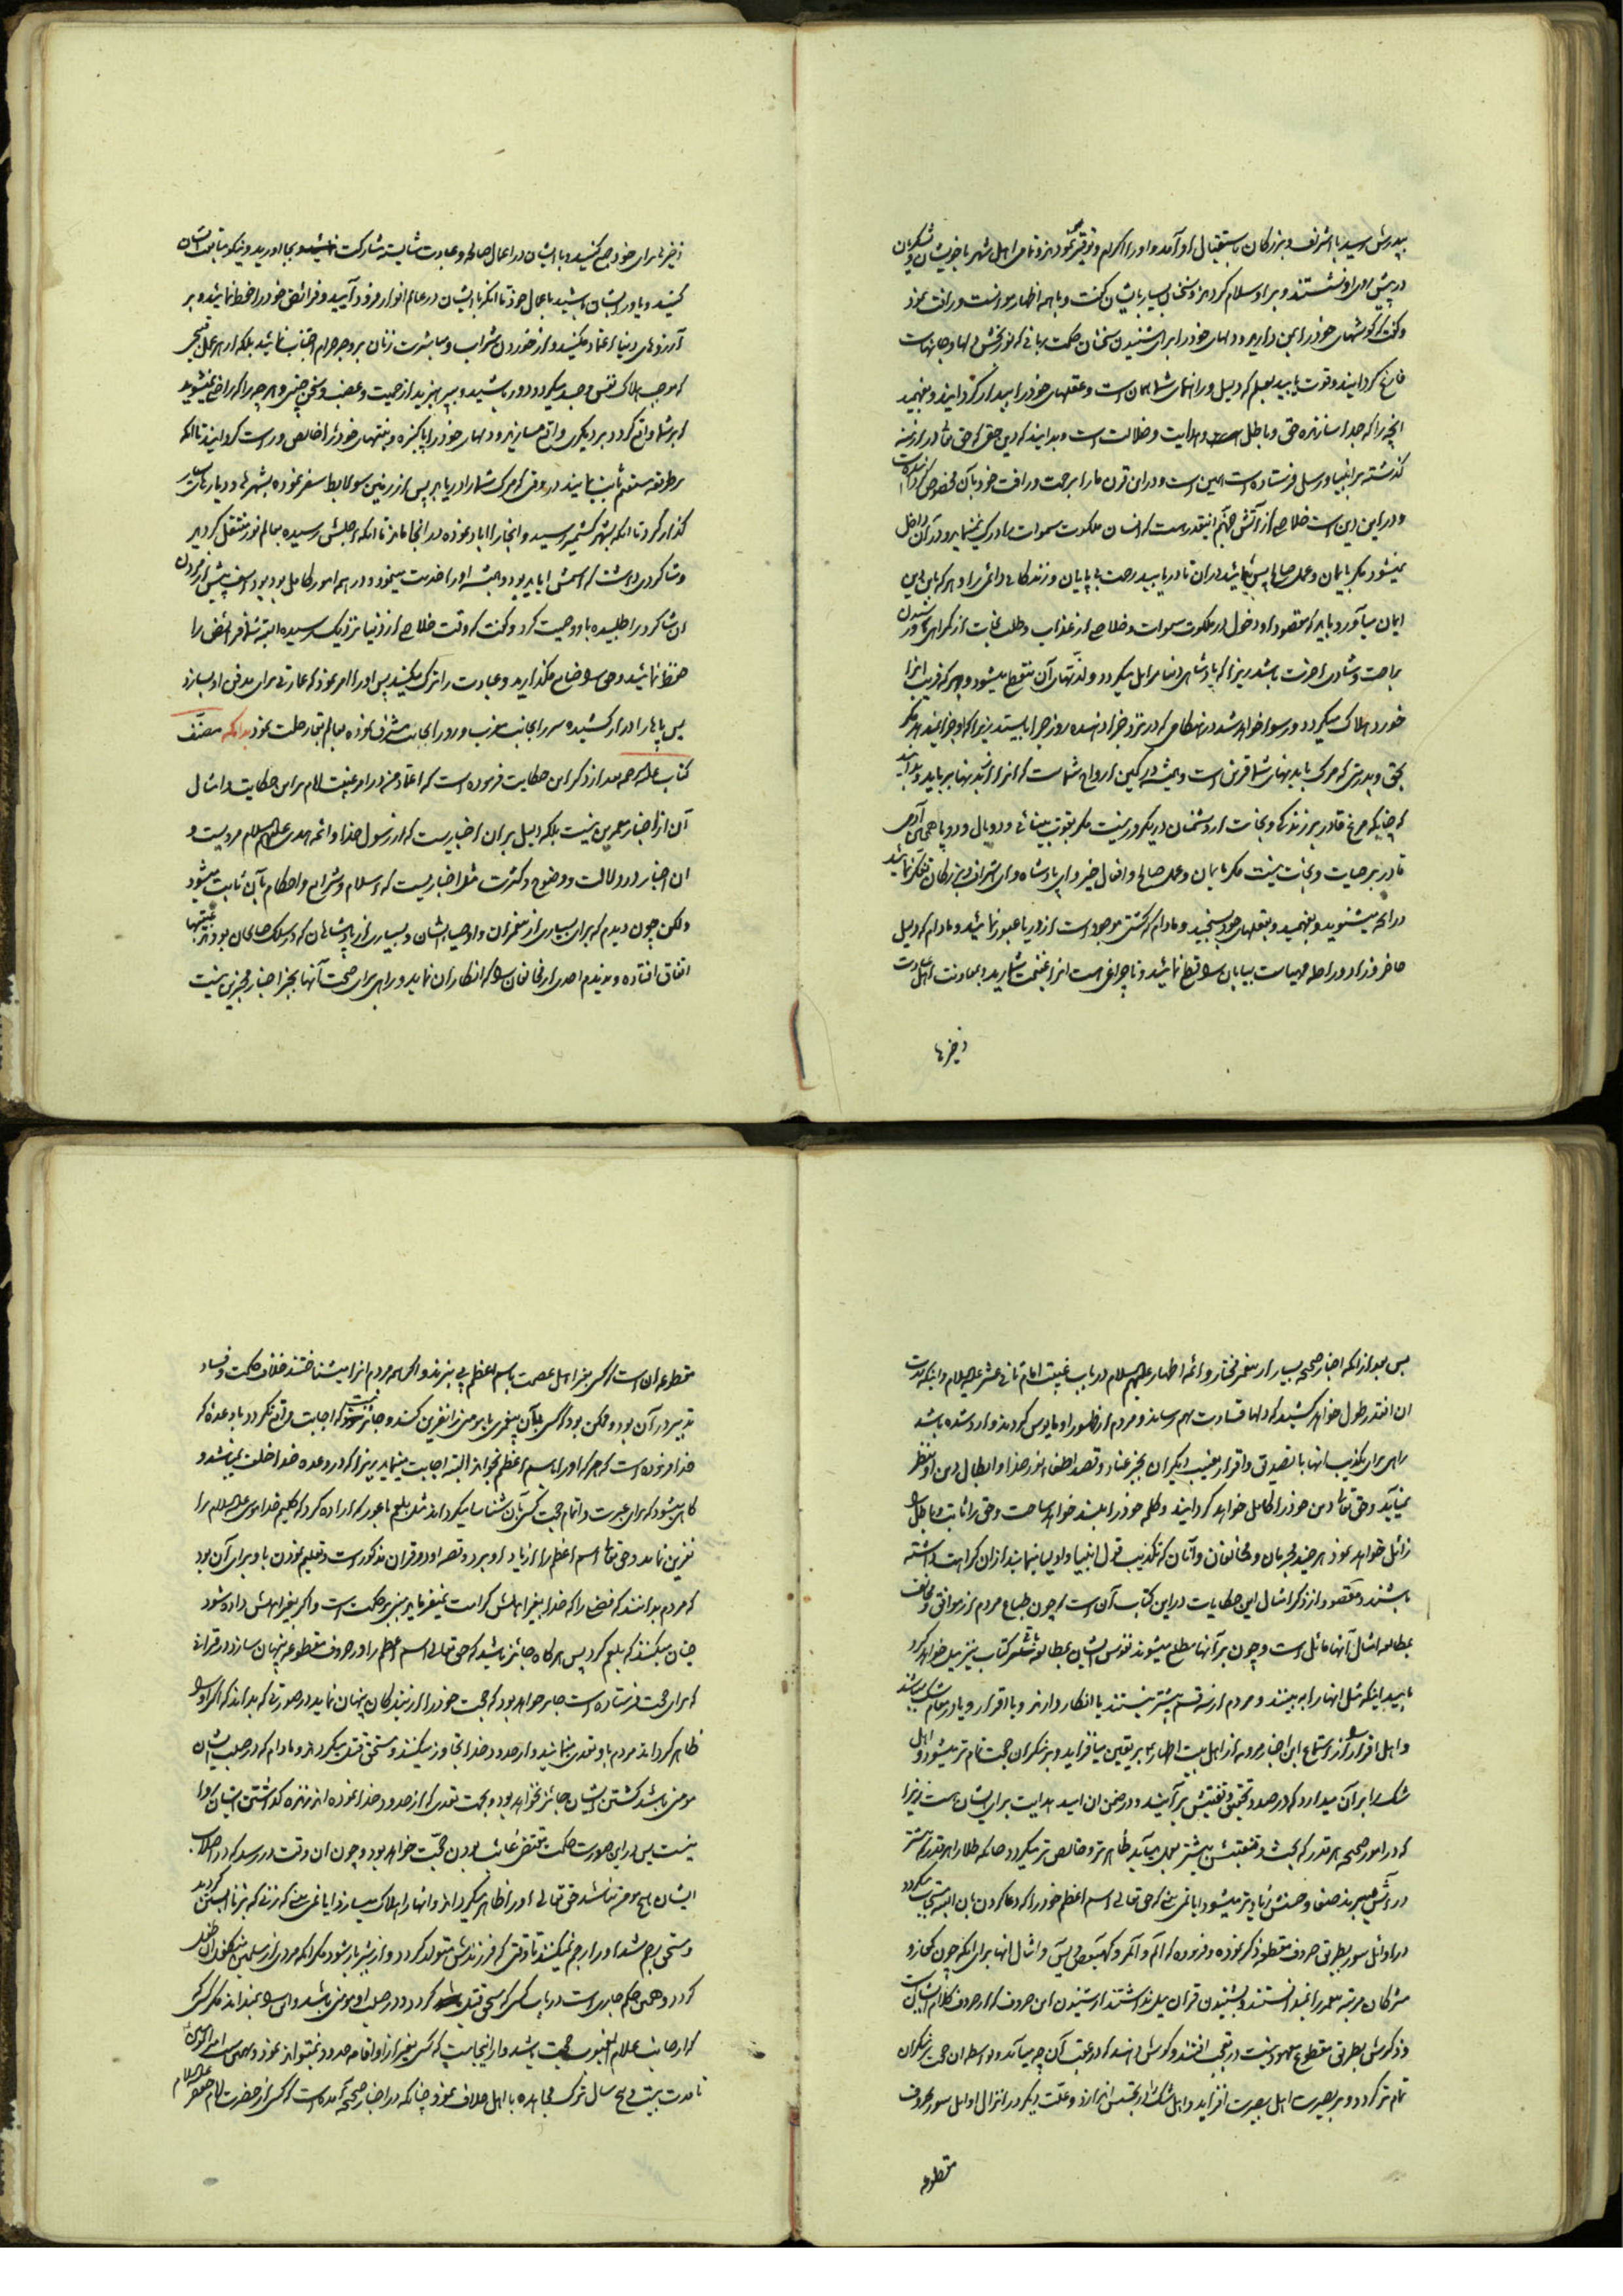 پدرش رسید با اشراف و بزرگان باستقبال او آمدند و او را اکرام و توقیر نمودند و تمامی اهل شهر با خویشان و لشکریان
در پیش او نشستند و بر او سلام کردند و سخنان بسیار بایشان گفت و با همه اظهار موانست و رافت نمود
و گفت که گوشهای خود را بمن دارید و دلهای خود را برای شنیدن سخنان حکمت ربانی که نور بخش دلها و جانهاست
فارغ گردانید و قوت یابید بعلم که دلیل و راهنمای شما بایمان است و عقلهای خود را بیدار گردانید و بفهمید
آنچه را که جدا سازنده حق و باطل و هدایت و ضلالت است و بدانید که دین حق که حق تعالی در ازمنه
گذشته بر انبیا و رسل فرستاده است همین است و در این قرن ما را برحمت و رافت خود بآن مخصوص گردانیده است
و در این دین است خلاصی از آتش جهنم اینقدر هست که انسان ملکوت سموات را درک نمینماید و در آن داخل
نمیشود مگر بایمان و عمل صالح پس بنمائید در آن تا دریابید رحمت بی پایان و زندگانی دائمی را و هر که باین دین
ایمان میآورد باید که مقصود او دخول در ملکوت سموات و خلاصی از عذاب و طلب نجات از گمراهی و رسیدن
براحت و شادی آخرت باشد زیرا که پادشاهی دنیا زایل میگردد و لذتهای آن منقطع میشود و هر که فریب آنرا
خورد هلاک میگردد و رسوا خواهد شد در هنگامی که در نزد جزا دهنده روز جزا بایستد زیرا که او جزا نمیدهد مگر
بحق و بدرستی که مرگ با بدنهای شما قرین است و همیشه در کمین ارواح شماست که آنرا از بدنها برباید و بدانید
که چنانکه مرغ قادر بر زندگی و نجات از دشمنان در یکروز نیست مگر بقوت بینائی و دو بال و دو پا همچنین آدمی
قادر بر حیات و نجات نیست مگر بایمان و عمل صالح و افعال خیر و ای پادشاه و ای اشراف و بزرگان تفکر نمائید
در آنچه میشنوید و بفهمید و بعقلهای خود بسنجید و مادام که کشتی موجود است از دریا عبور نمائید و مادام که دلیل
حاضر و زاد و راحله مهیاست بیابان را قطع نمائید و تا چراغی هست آنرا غنیمت شمارید و بمعاونت اهل سعادت
ذخیرها
ذخیرها برای خود جمع کنید و با ایشان در اعمال صالحه و عبادت شایسته مشارکت نمائید و بجا آورید و نیکو متابعت ایشان
کنید و یاور ایشان باشید باعمال خود تا آنکه با ایشان در عالم انوار فرود آیید و فرائض خود را حفظ نمائید و بر
آرزوهای دنیا اعتماد مکنید و از خوردن شراب و مباشرت زنان بر وجه حرام اجتناب نمائید بلکه از هر عمل قبیحی
که موجب هلاک نفس و جسد میگردد دور باشید و بپرهیزید از حمیت و غضب و سخن چینی و هر چه را که راضی نمیشوید
که بر شما واقع گردد بر دیگری واقع مسازید و دلهای خود را پاکیزه و نیتهای خود را خالص و راست گردانید تا آنکه
بر طریقه مستقیم ثابت بمانید در وقتی که مرگ شما را دریابد پس از زمین سولابط سفر نموده بشهرها و دیارهای بسیار
گذار کرد تا آنکه بشهر کشمیر رسید و آنجا را آباد نموده در آنجا ماند تا آنکه اجلش رسیده بعالم نور منتقل گردید
و شاگردی داشت که اسمش ابابد بود و همیشه او را خدمت مینمود و در همه امور کامل بود یوذاسف پیش از مردن
آن شاگرد را طلبیده باو وصیت کرد و گفت که وقت خلاصی از دنیا نزدیک رسیده البته شما فرائض را
حفظ نمائید و حق را ضایع مگذارید و عبادت را ترک مکنید پس او را امر نمود که عمارتی برای مدفن او بسازد
پس پاها را دراز کشیده سر را بجانب مغرب و رو را بجانب مشرق نموده بعالم بقا رحلت نمود بدانکه مصنف
کتاب علیه الرحمه بعد از ذکر این حکایت فرموده است که اعتماد من در امر غیبت امام بر این حکایت و امثال
آن از اخبار معمرین نیست بلکه دلیل بر آن اخباریست که از رسول خدا و ائمه هدی علیهم السلام مرویست و
آن اخبار در دلالت و وضوح و کثرت مثل اخباریست که اسلام و شرایع و احکام بآن ثابت میشود
ولکن چون دیدم که برای بسیاری از پیغمبران و اوصیا ایشان و بسیاری از پادشاهان که در سلک صالحان بودند غیبتها
اتفاق افتاده و ندیدم احدی از مخالفان را که انکار آن نماید و راهی برای صحت آنها بجز اخبار مخبرین نیست
پس بعد از آنکه اخبار صحیحه بسیار از پیغمبر مختار و ائمه اطهار علیهم السلام در باب غیبت امام ثانی عشر علیه السلام و اینکه مدت
آن آنقدر طول خواهد کشید که دلها قساوت بهم رساند و مردم از ظهور او مایوس گردند وارد شده باشد
راهی برای تکذیب آنها با تصدیق و اقرار بغیبت دیگران بجز عناد و قصد اطفاء نور خدا و ابطال دین او بنظر
نمیآید و حق تعالی دین خود را کامل خواهد گردانید و کلمه خود را بلند خواهد ساخت و حق را ثابت و باطل را
زائل خواهد نمود هر چند مجرمان و مخالفان و آنان که تکذیب قول انبیا و اولیا مینمایند از آن کراهت داشته
باشند و مقصود از ذکر امثال این حکایات در این کتاب آن است که چون طباع مردم از موافق و مخالف
بمطالعه امثال آنها مائل است و چون بر آنها مطلع میشوند نفوس ایشان بمطالعه تتمه کتاب نیز میل خواهد کرد
بامید اینکه مثل آنها را به بینند و مردم از سه قسم بیشتر نیستند یا انکار دارند و یا اقرار و یا در مقام شک میباشند
و اهل اقرار را از استماع این اخبار مرویه از اهل بیت اطهار بر یقین میافزاید و بر منکران حجت تمام تر میشود و اهل
شک را بر آن میدارد که در صدد تحقیق و تفتیش برآیند و در ضمن آن امید هدایت برای ایشان هست زیرا
که در امور صحیحه هر قدر که بحث و تفتیش بیشتر بعمل میآید ظاهرتر و خالص تر میگردد چنانکه طلا را هر قدر که بیشتر
در آتش میبرند صفا و حسنش زیادتر میشود آیا نمی بینی که حق تعالی اسم اعظم خود را که دعا کردن بآن البته مستجاب میگردد
در اوائل سور بطریق حروف مقطعه ذکر نموده و فرموده که الم و المر و کهیعص و یس و امثال آنها برای آنکه چون کفار و
مشرکان مرتبه پیغمبر را نمیدانستند و بشنیدن قرآن میل نداشتند از شنیدن این حروف که از حروف کلام ایشان است
و ذکرش بطریق مقطوع معهود نیست در تعجب افتند و گوش دهند که در عقب آن چه میآید و بواسطه آن حجت بر منکران
تمام تر گردد و بر بصیرت اهل بصیرت افزاید و اهل شک را در تجسس اندازد و علت دیگر در انزال اوایل سور بحروف
مقطوعه
مقطوعه آن است که کسی بغیر اهل عصمت باسم اعظم پی نبرد و اگر همه مردم آنرا میشناختند خلاف حکمت و فساد
تدبیر در آن بود و ممکن بود که کسی بآن پیغمبری یا مومنی را نفرین کند و جائز نیست که اجابت واقع نگردد با وعده که
خدا فرموده است که هر که او را باسم اعظم بخواند البته اجابت مینماید زیرا که در وعده خدا خلف نمیباشد و
گاهی میشود که برای عبرت و اتمام حجت کسی را بآن شناسا میگرداند مثل بلعم باعور که اراده کرد که کلیم خدا موسی علیه السلام را
نفرین نماید و حق تعالی اسم اعظم را از یاد او ببرد و قصه او در قرآن مذکور است و تعلیم نمودن باو برای آن بود
که مردم بدانند که فضیلت را که خدا بغیر اهلش کرامت نمیفرماید مبنی بر حکمت است و اگر بغیر اهلش داده شود
چنان میکند که بلعم کرد پس هر گاه جائز باشد که حق تعالی اسم اعظم را در حروف مقطوعه پنهان سازد در قرآنی
که برای حجت فرستاده است جایز خواهد بود که حجت خود را از بندگان پنهان نماید در صورتی که بداند که اگر او را
ظاهر گرداند مردم باو تعدی مینمایند و از حدود خدا تجاوز میکنند و مستحق قتل میگردند و مادام که در صلب ایشان
مومنی باشد کشتن ایشان جائز نخواهد بود و بجهت تعدی که از حدود خدا نموده اند زنده گذاشتن ایشان روا
نیست پس در این صورت حکمت مقتضی غائب بودن حجت خواهد بود و چون آن وقت در رسد که در اصلاب
ایشان هیچ مومنی نباشد حق تعالی او را ظاهر میگرداند و آنها را هلاک میسازد آیا نمی بینی که زنی که بزنا آبستن گردید
و مستحق رجم شد او را رجم نمیکنند تا وقتی که فرزندش متولد گردد و از شیر باز شود مگر آنکه مردی از مسلمین متکفل آن طفل
گردد و همین حکم جاری است در باب کسی که مستحق قتل گردد و در صلب او مومنی باشد و این را نمیداند مگر کسی
که از جانب علام الغیوب حجت باشد و از اینجاست که کسی بغیر از او اقامه حدود نمیتواند نمود و بهمین سبب امیرالمومنین
تا مدت بیست و پنج سال ترک مجاهده با اهل خلاف نمود چنانکه در اخبار صحیحه آمده است که کسی از حضرت امام جعفر علیه السلام